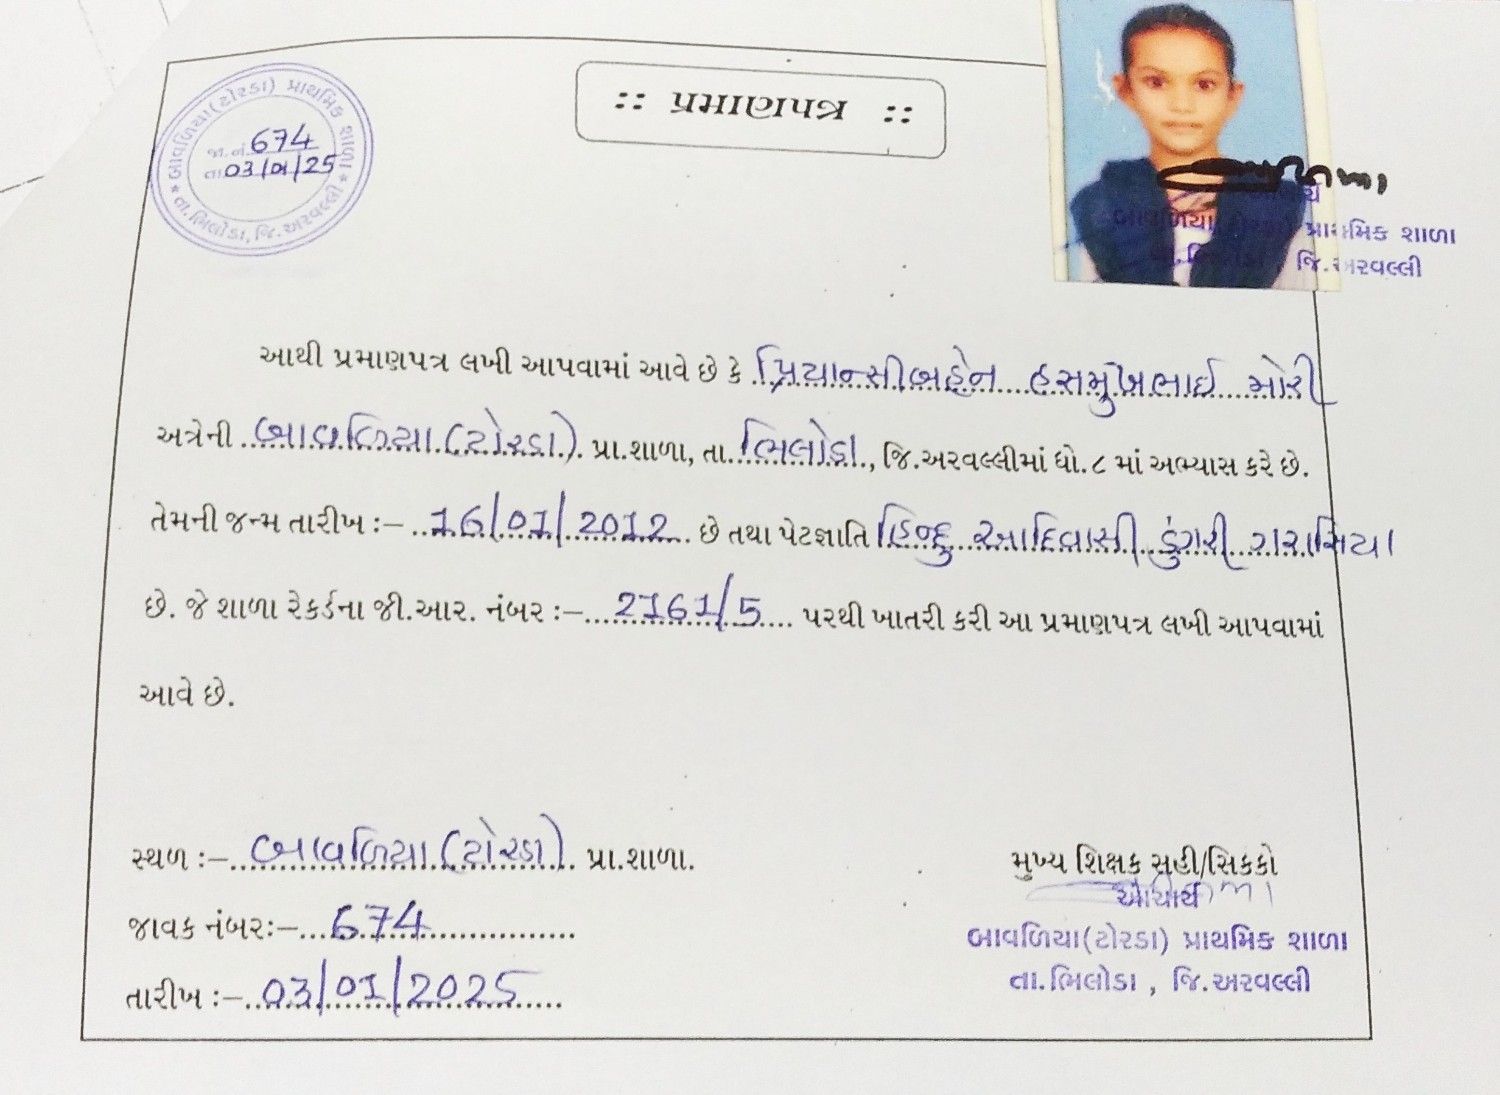 :: પ્રમાણપત્ર ::
બાવળિયા(ટોરડા) પ્રાથમિક શાળા
જા.નં. 674
તા. 03/01/25
તા.ભિલોડા, જિ.અરવલ્લી
બાવળિયા પ્રાથમિક શાળા
જિ.અરવલ્લી
આથી પ્રમાણપત્ર લખી આપવામાં આવે છે કે પ્રિયાન્સીબહેન હસમુખભાઈ મોરી
અત્રેની બાવળિયા (ટોરડા) પ્રા.શાળા, તા. ભિલોડા, જિ.અરવલ્લીમાં ધો.૮ માં અભ્યાસ કરે છે.
તેમની જન્મ તારીખ :- 16/01/2012 છે તથા પેટજ્ઞાતિ હિન્દુ આદિવાસી ડુંગરી ગરાસિયા
છે. જે શાળા રેકર્ડના જી.આર. નંબર :- 2161/5 પરથી ખાતરી કરી આ પ્રમાણપત્ર લખી આપવામાં
આવે છે.
સ્થળ :- બાવળિયા (ટોરડા) પ્રા.શાળા.
જાવક નંબર:- 674
તારીખ :- 03/01/2025
મુખ્ય શિક્ષક સહી/સિક્કો
આચાર્ય
બાવળિયા(ટોરડા) પ્રાથમિક શાળા
તા.ભિલોડા , જિ.અરવલ્લી